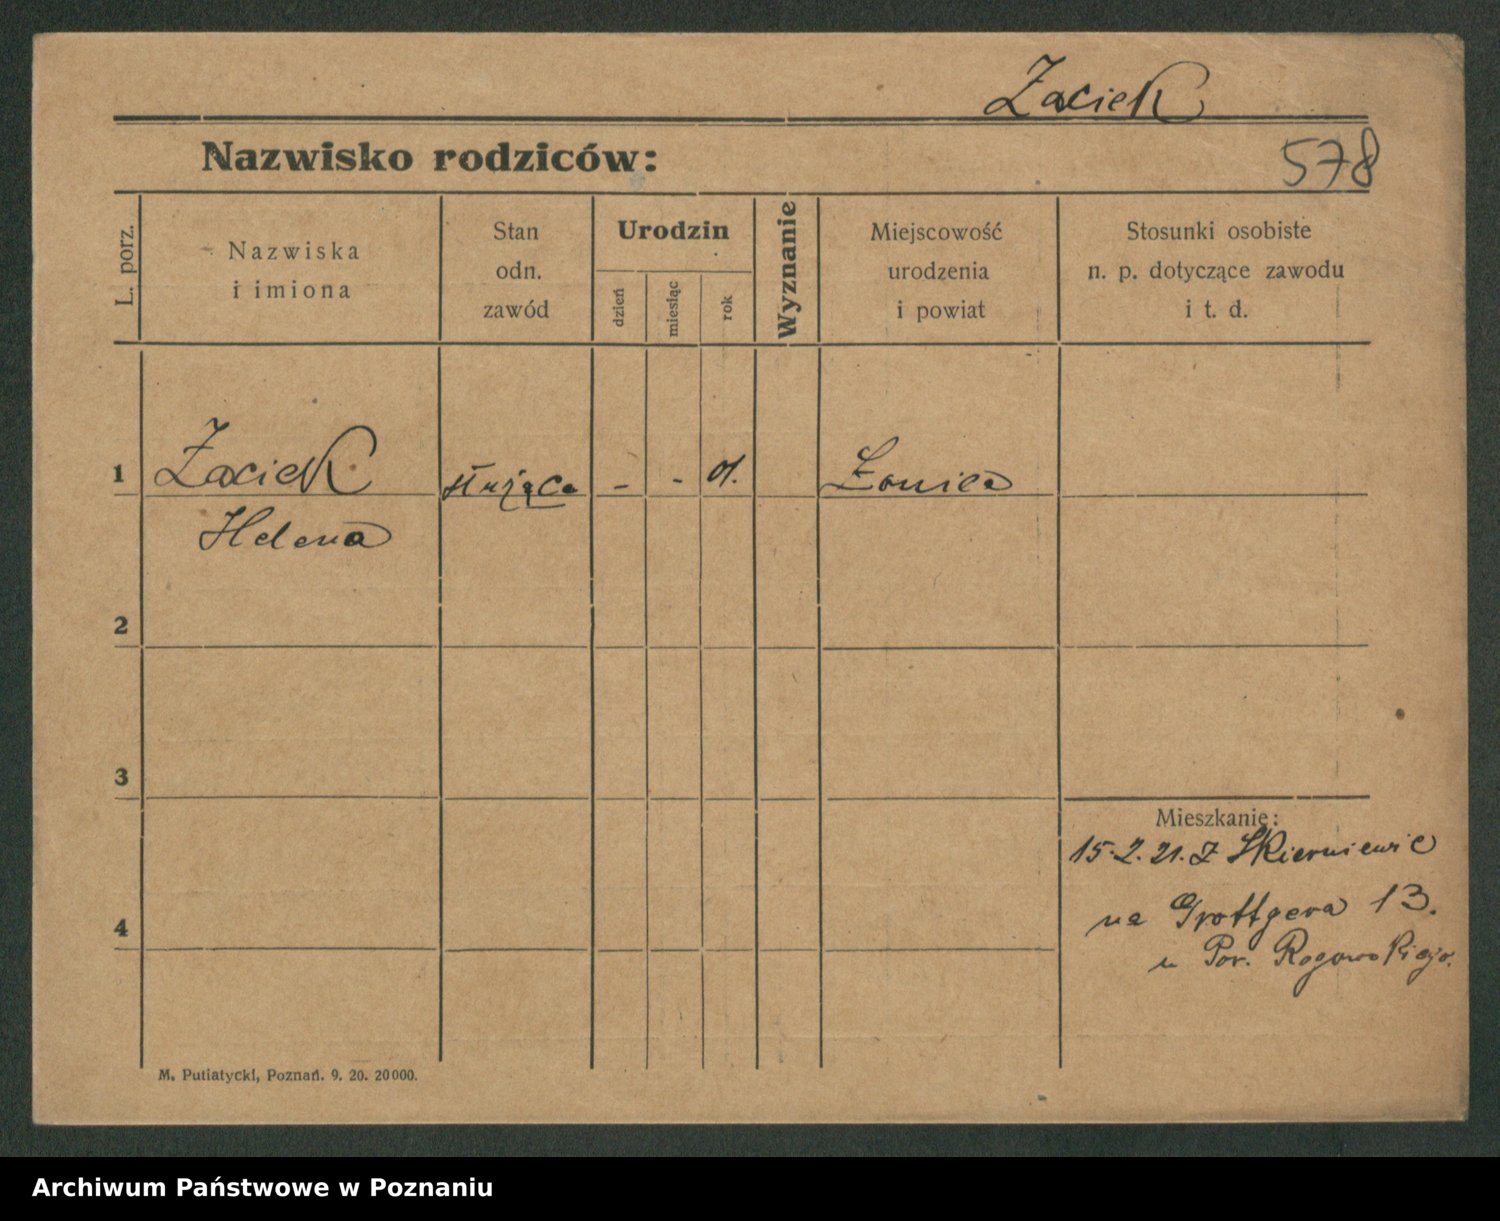 Zaciek
Nazwisko rodziców:
578
L. porz.
Nazwiska
i imiona
Stan
odn.
zawód
Urodzin
dzień
miesiąc
rok
Wyznanie
Miejscowość
urodzenia
i powiat
Stosunki osobiste
n. p. dotyczące zawodu
i t. d.
1
Zaciek
służąca
-
-
01.
Helena
2
3
4
Mieszkanie:
15.2.21. z Skierniewic
na Grottgera 13.
u Por. Rogowskiego.
M. Putiatycki, Poznań. 9. 20. 20000.
Archiwum Państwowe w Poznaniu